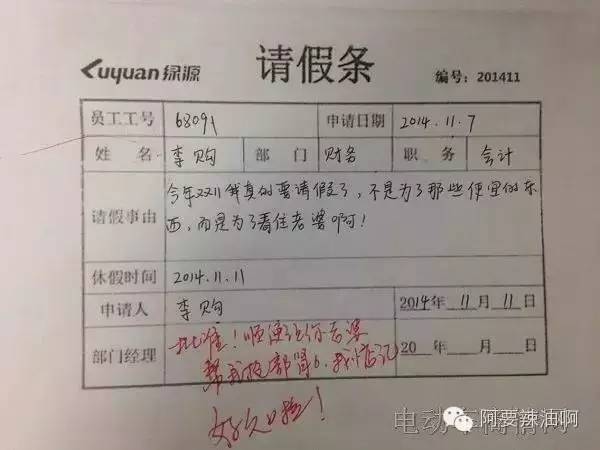 Luyuan 绿源 请假条 编号: 201411
员工工号 68091 申请日期 2014.11.7
姓名 李购 部门 财务 职务 会计
请假事由 今年双11我真的要请假了,不是为了那些便宜的东
西,而是为了看住老婆啊!
休假时间 2014.11.11
申请人 李购 2014年11月11日
部门经理 批准!顺便让你老婆 20 年 月 日
帮我抢部肾6.
好久了!
电动车商情网
阿要辣油啊